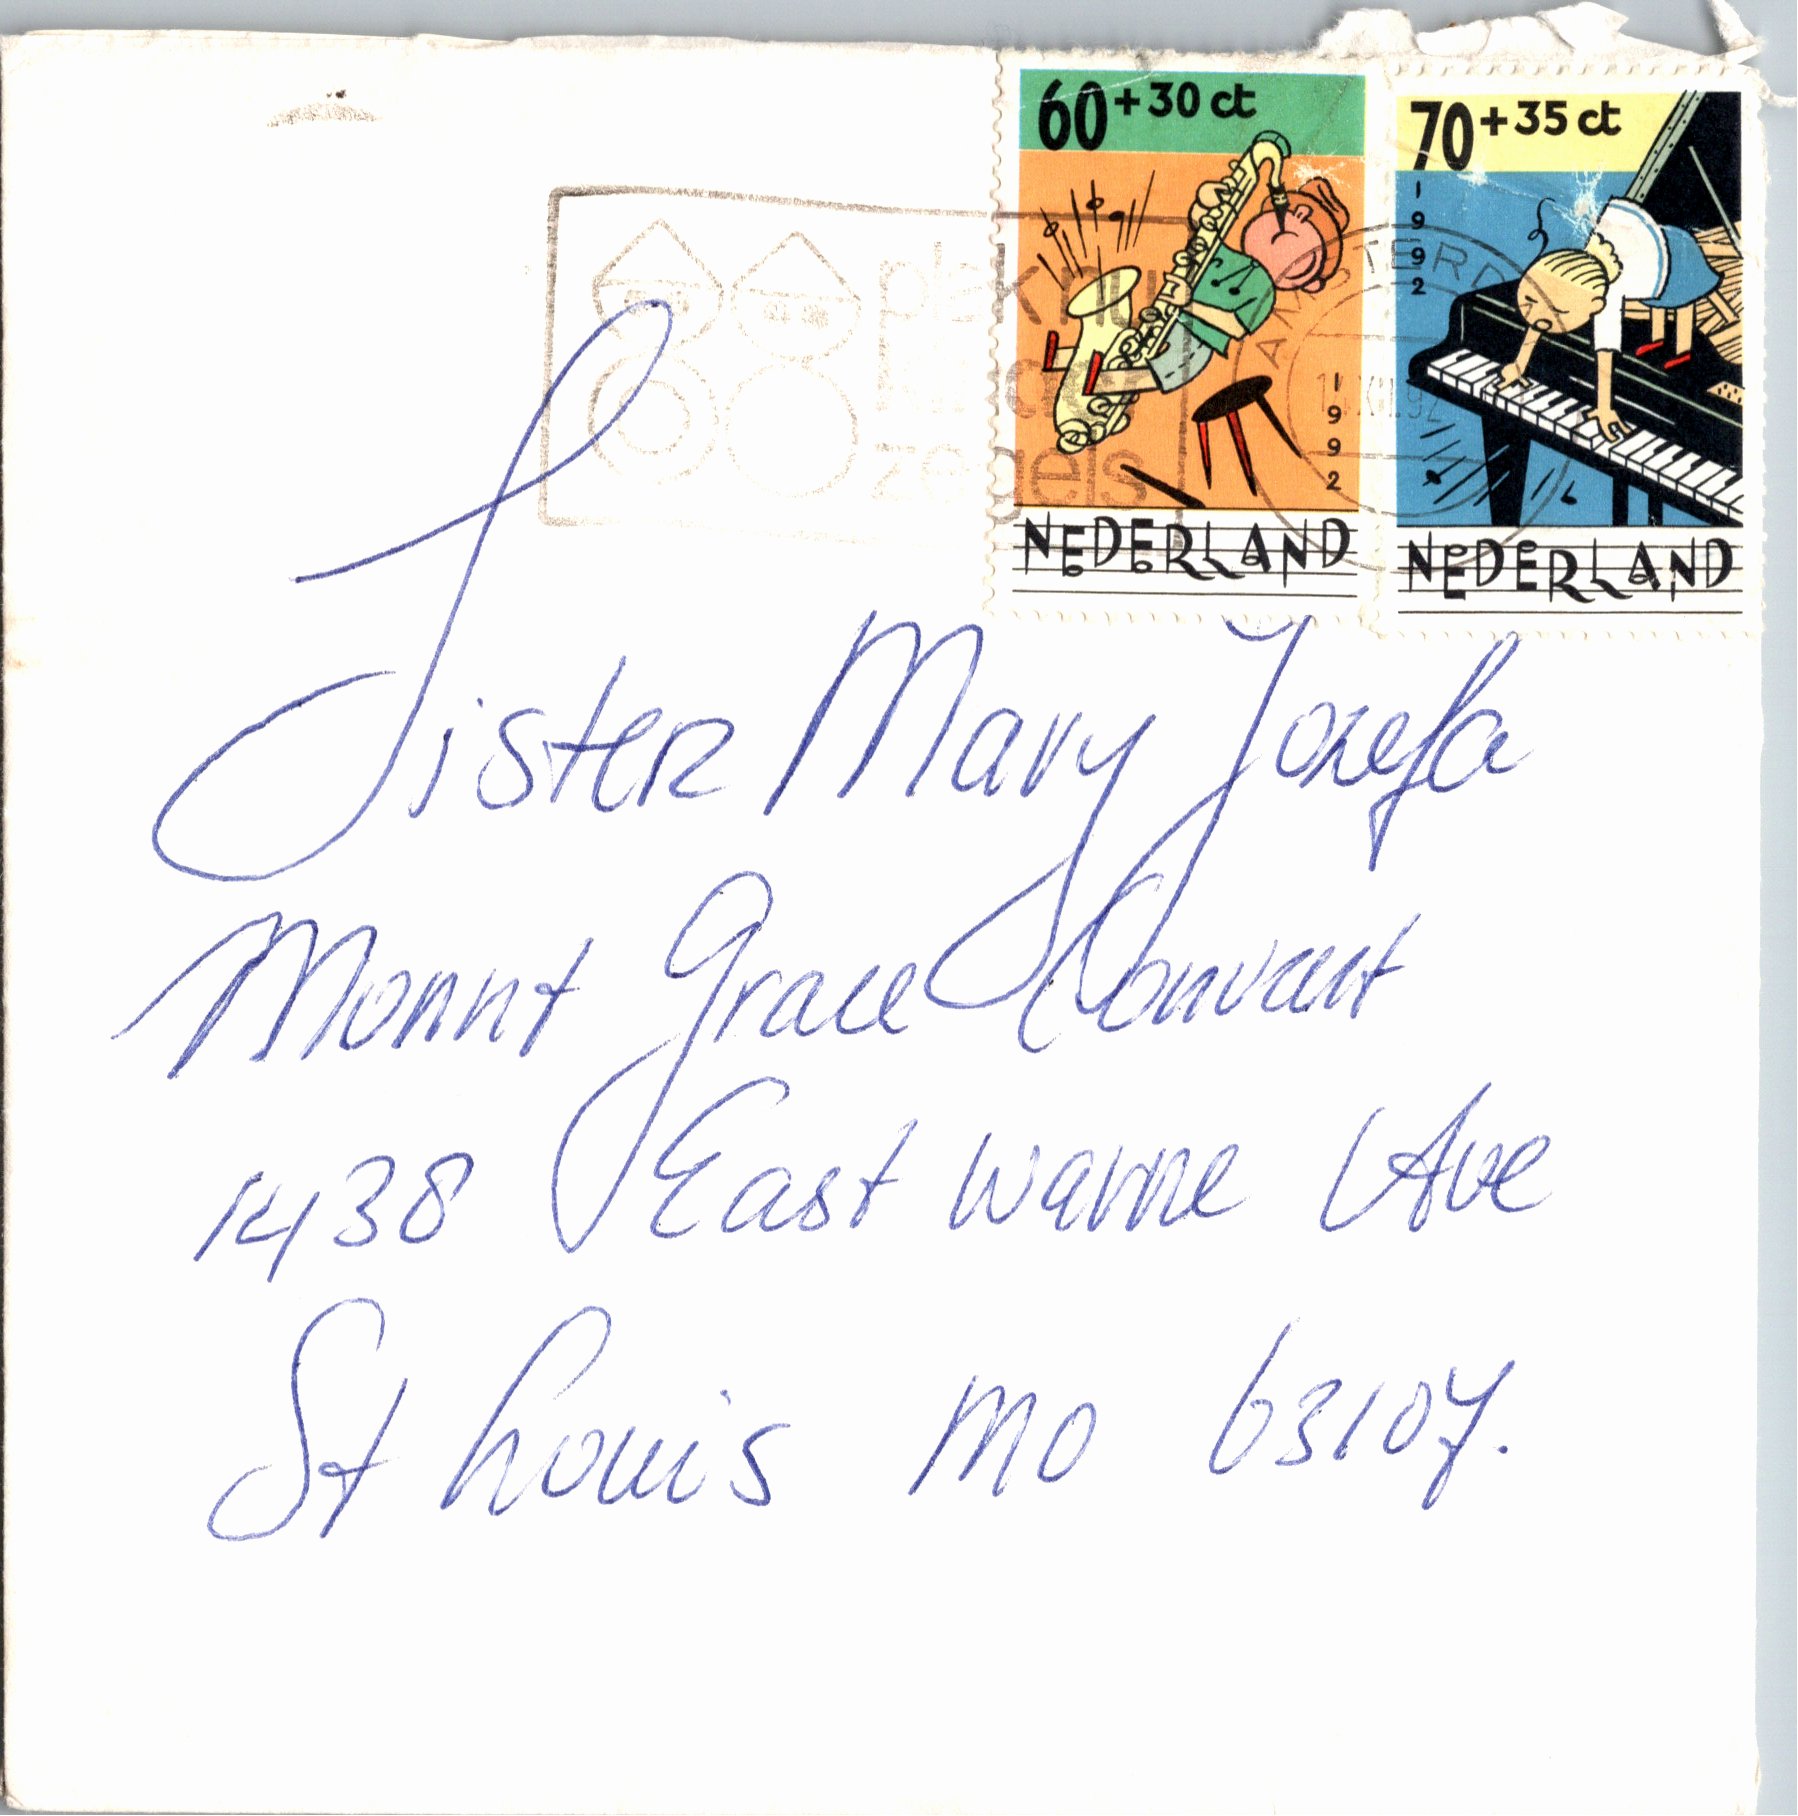 60 + 30 ct
1992
NEDERLAND
70 + 35 ct
1992
NEDERLAND
plak nu
kinder
zegels
AMSTERD
Sister Mary Jozefa
Mount Grace Convent
1438 East Warne Ave
St Louis Mo 63107.